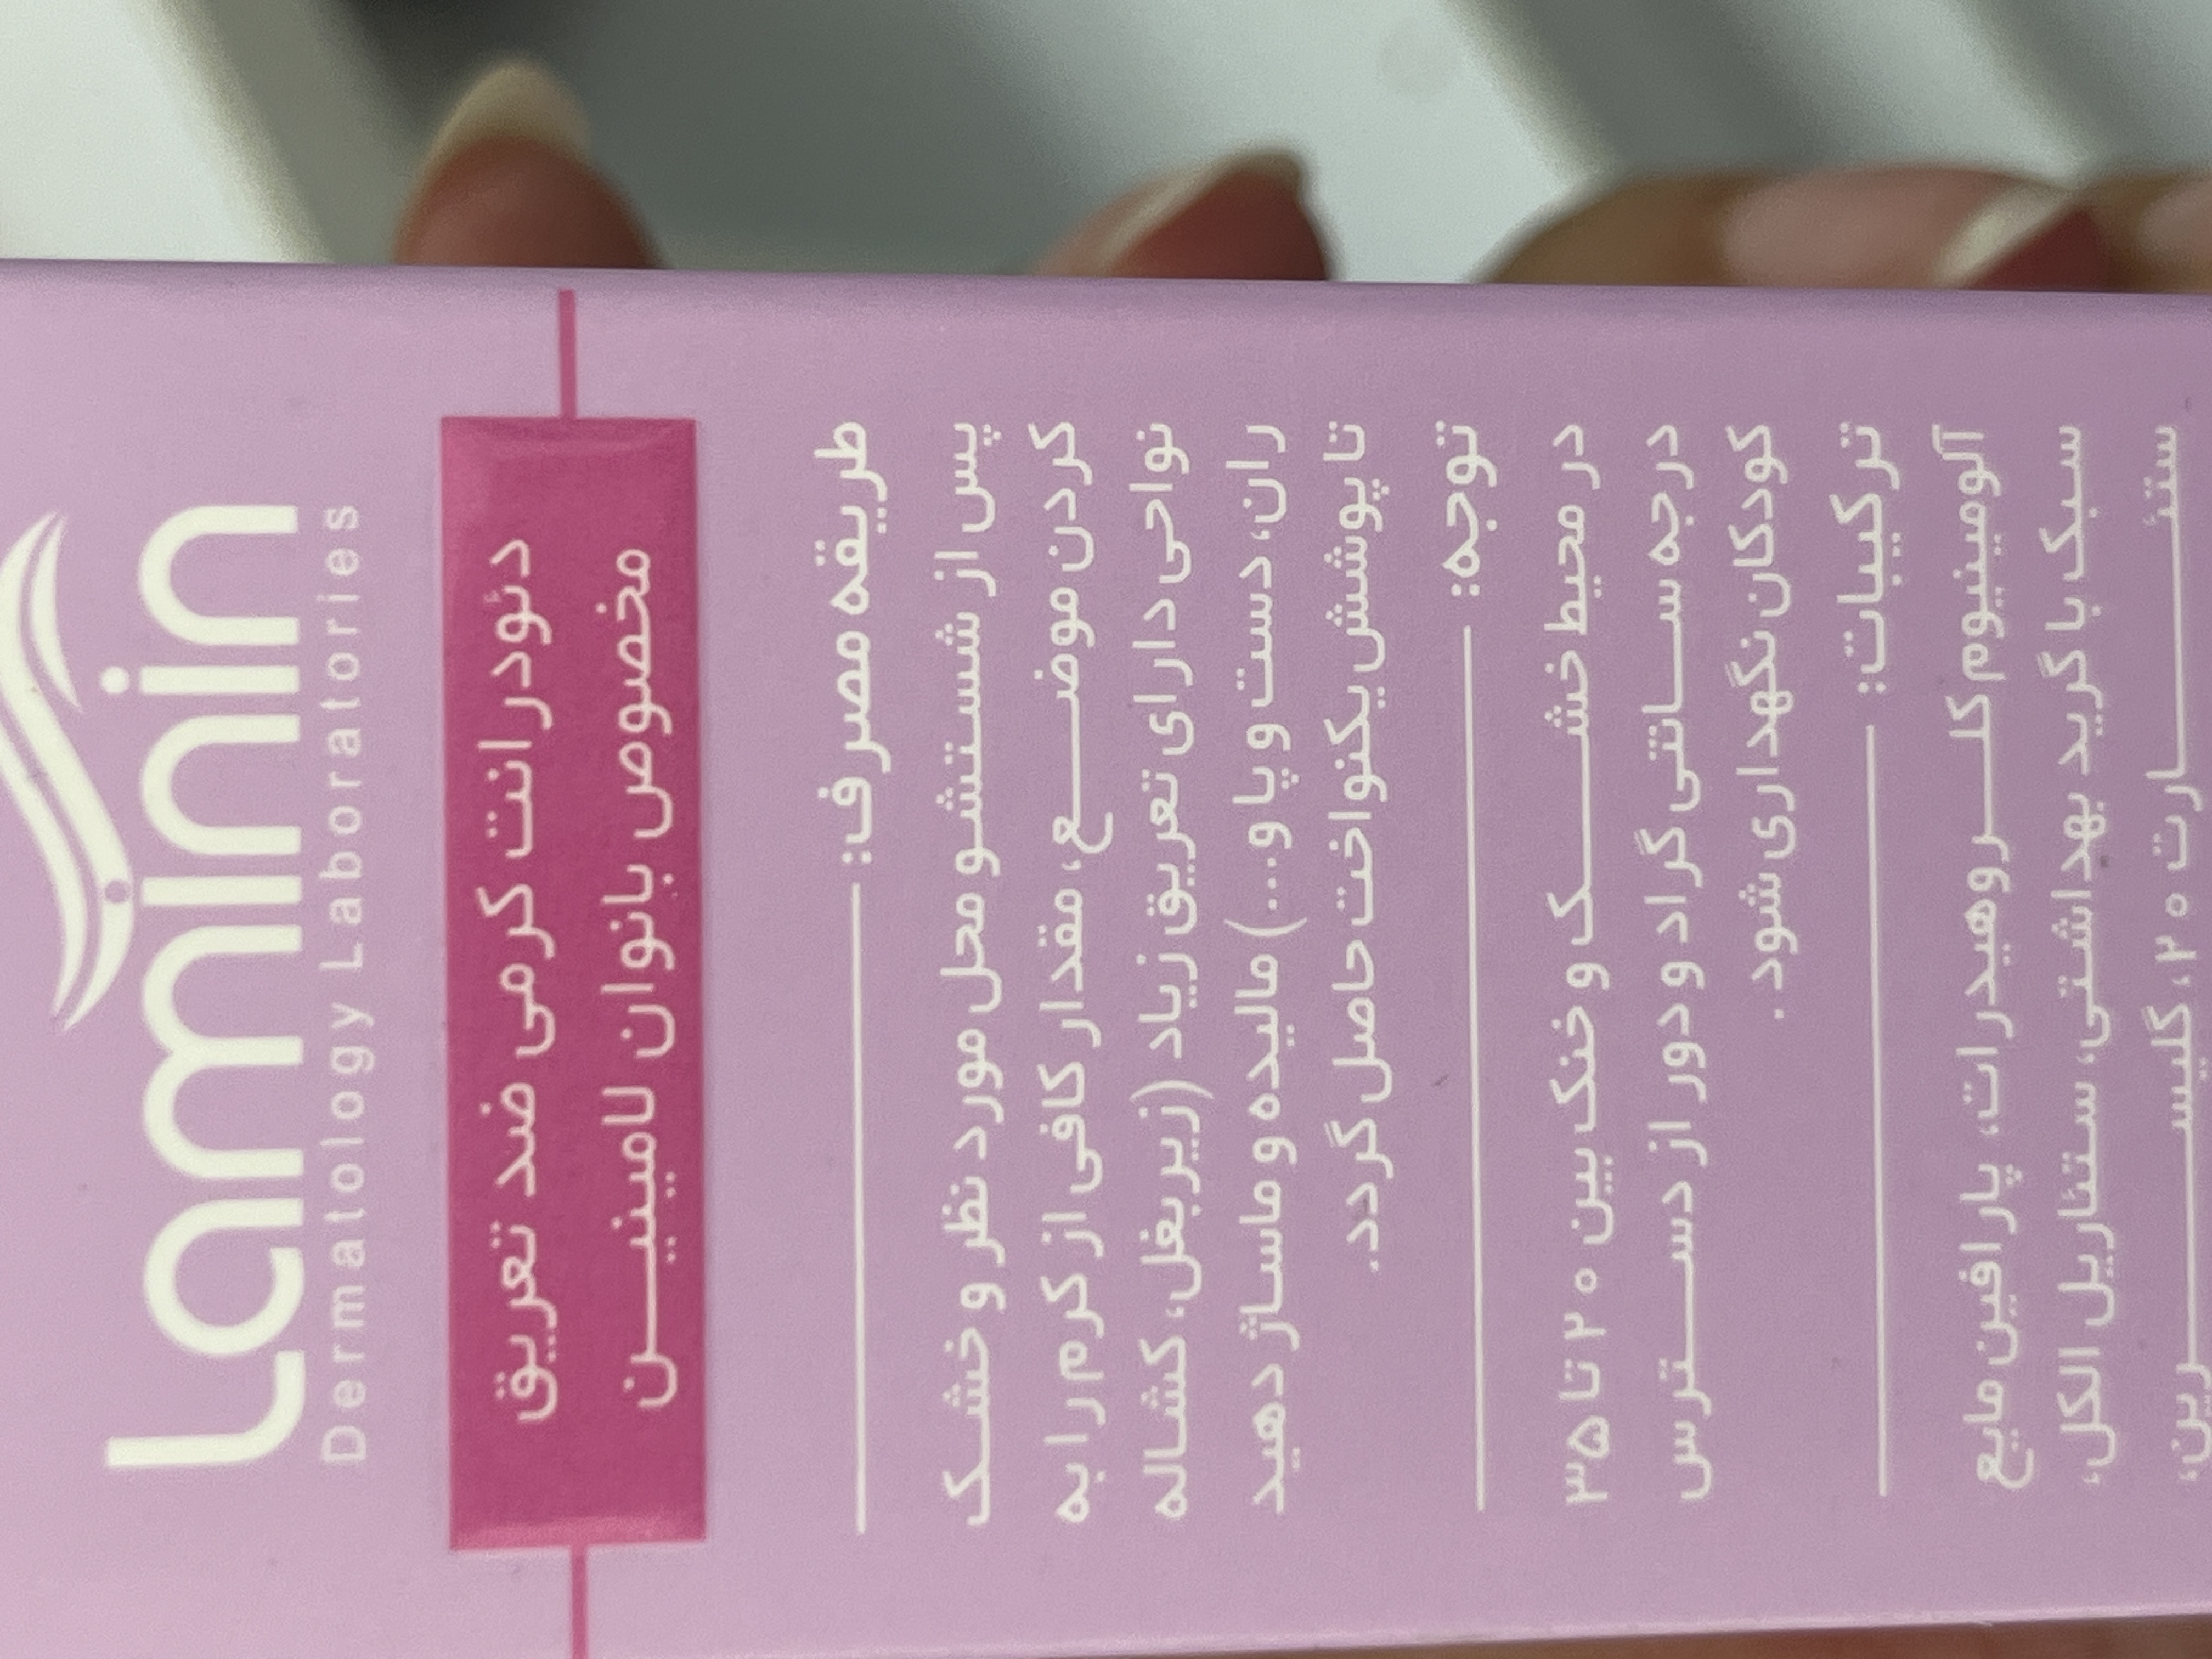 Laminin
Dermatology Laboratories
دئودرانت کرمی ضد تعریق
مخصوص بانوان لامینیـــن
طریقه مصرف:
پس از شستشو محل مورد نظر و خشک
کردن موضـــع، مقدار کافی از کرم را به
نواحی دارای تعریق زیاد (زیر بغل، کشاله
ران، دست و پا و...) مالیده و ماساژ دهید
تا پوشش یکنواخت حاصل گردد.
توجه:
در محیط خشـــک و خنک بین ۲۰ تا ۳۵
درجه ســـانتی گراد و دور از دســـترس
کودکان نگهداری شود.
ترکیبات:
آلومینیوم کلـــروهیدرات، پارافین مایع
سبک با گرید بهداشتی، ستئاریل الکل،
ستئـــــارت ۲۰، گلیســـــرین،